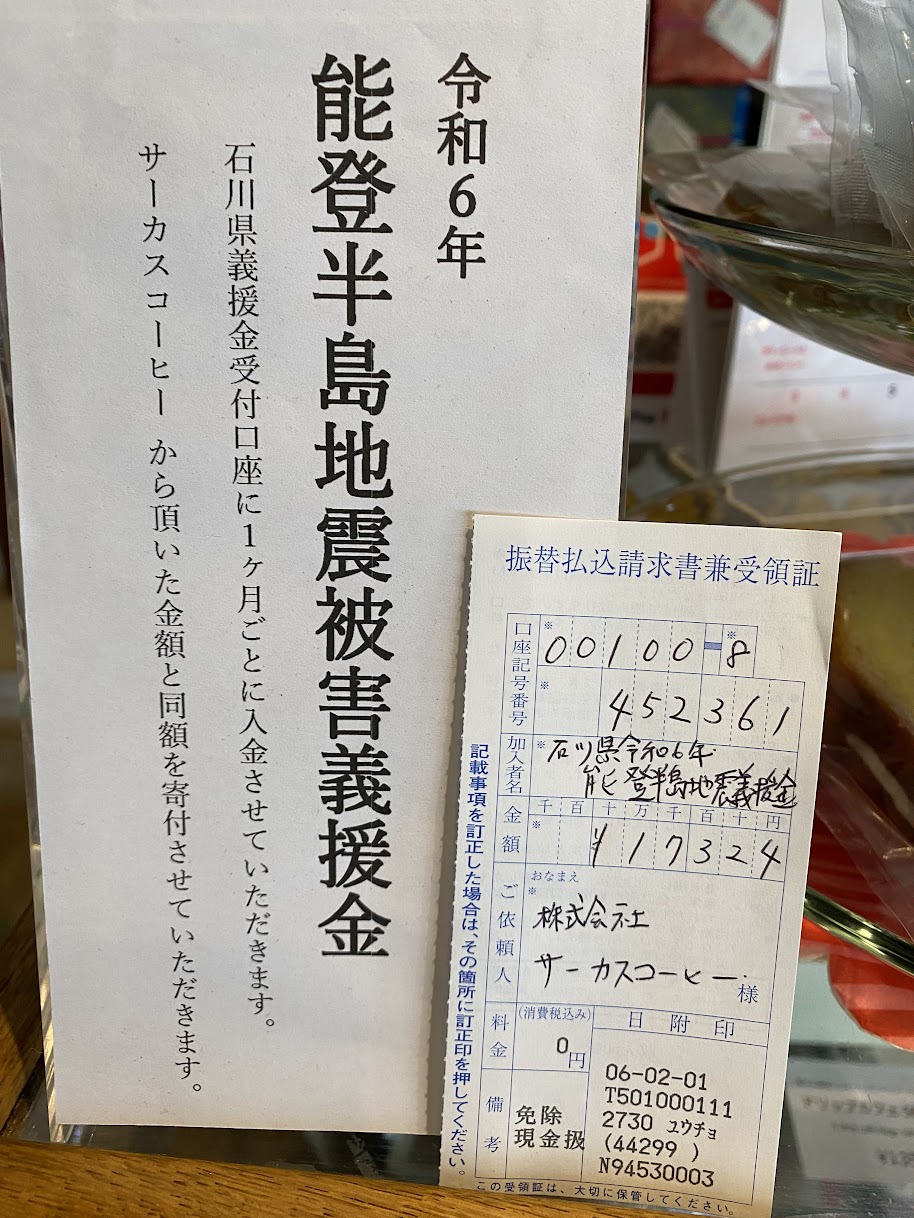 令和6年
能登半島地震被害義援金
石川県義援金受付口座に1ヶ月ごとに入金させていただきます。
サーカスコーヒー から頂いた金額と同額を寄付させていただきます。
振替払込請求書兼受領証
口座記号番号
※
00100-8
※
※
452361
加入者名
※
石川県令和6年
能登半島地震義援金
金額
千百十万千百十円
※
¥17324
ご依頼人
おなまえ
※
株式会社
サーカスコーヒー
様
料金
(消費税込み)
0円
日附印
備考
免除
現金扱
06-02-01
T501000111
2730 ユウチョ
(44299 )
N94530003
記載事項を訂正した場合は、その箇所に訂正印を押してください。
この受領証は、大切に保管してください。